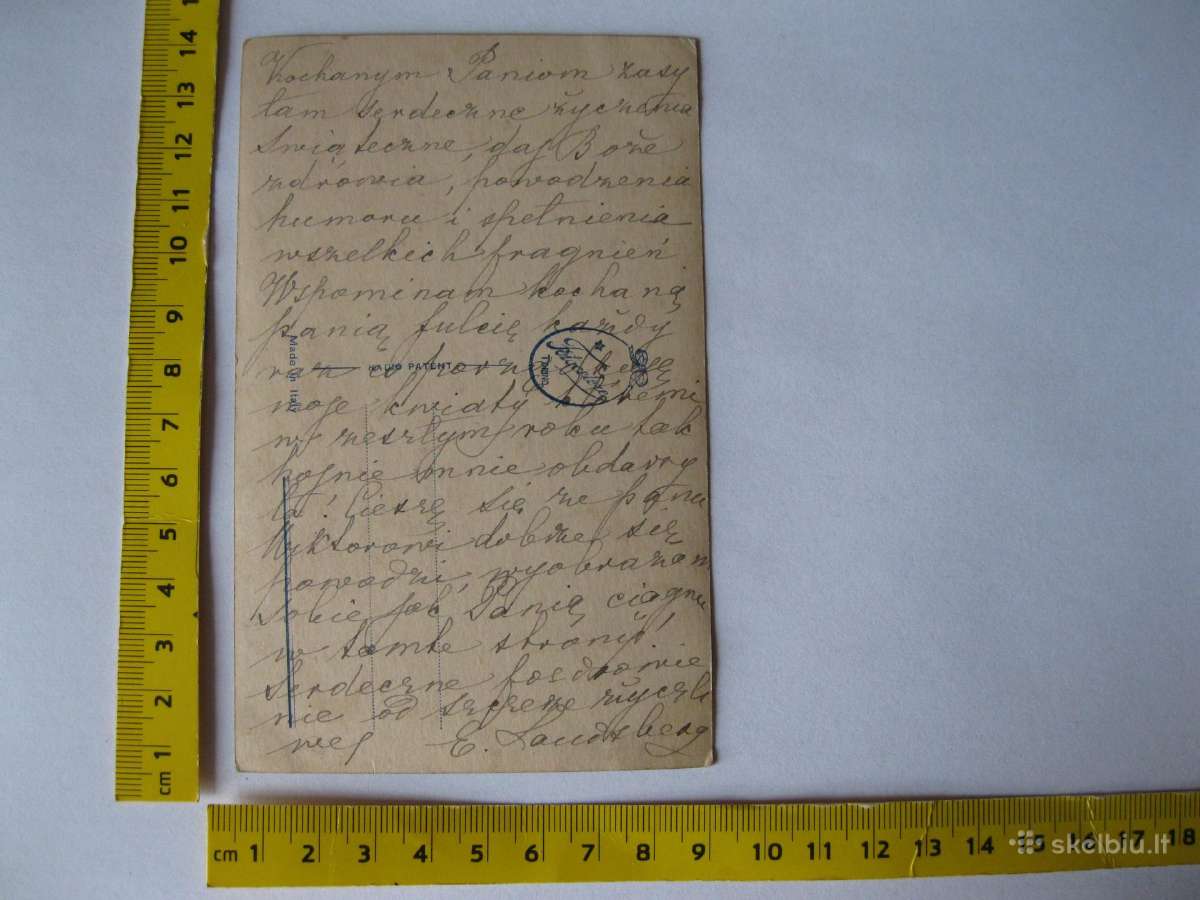 Kochanym Paniom zasy
łam serdeczne życzenia
świąteczne, daj Boże
zdrowia, powodzenia
humoru i spełnienia
wszelkich pragnień
Wspominam kochaną
panią Julcię każdy
raz
moje kwiaty
w zeszłym roku tak
hojnie mnie obdarzy
ła! Cieszę się że panu
Wiktorowi dobrze się
powodzi, wyobrażam
sobie jak Panią ciągnie
w tamte strony!
Serdeczne pozdrowie
nie od szczerze życzli
wej E. Landsberg
Made in Italy
RADIO PATENT
TORINO
cm 1 2 3 4 5 6 7 8 9 10 11 12 13 14
cm 1 2 3 4 5 6 7 8 9 10 11 12 13 14 15 16 17 18
skelbiu.lt